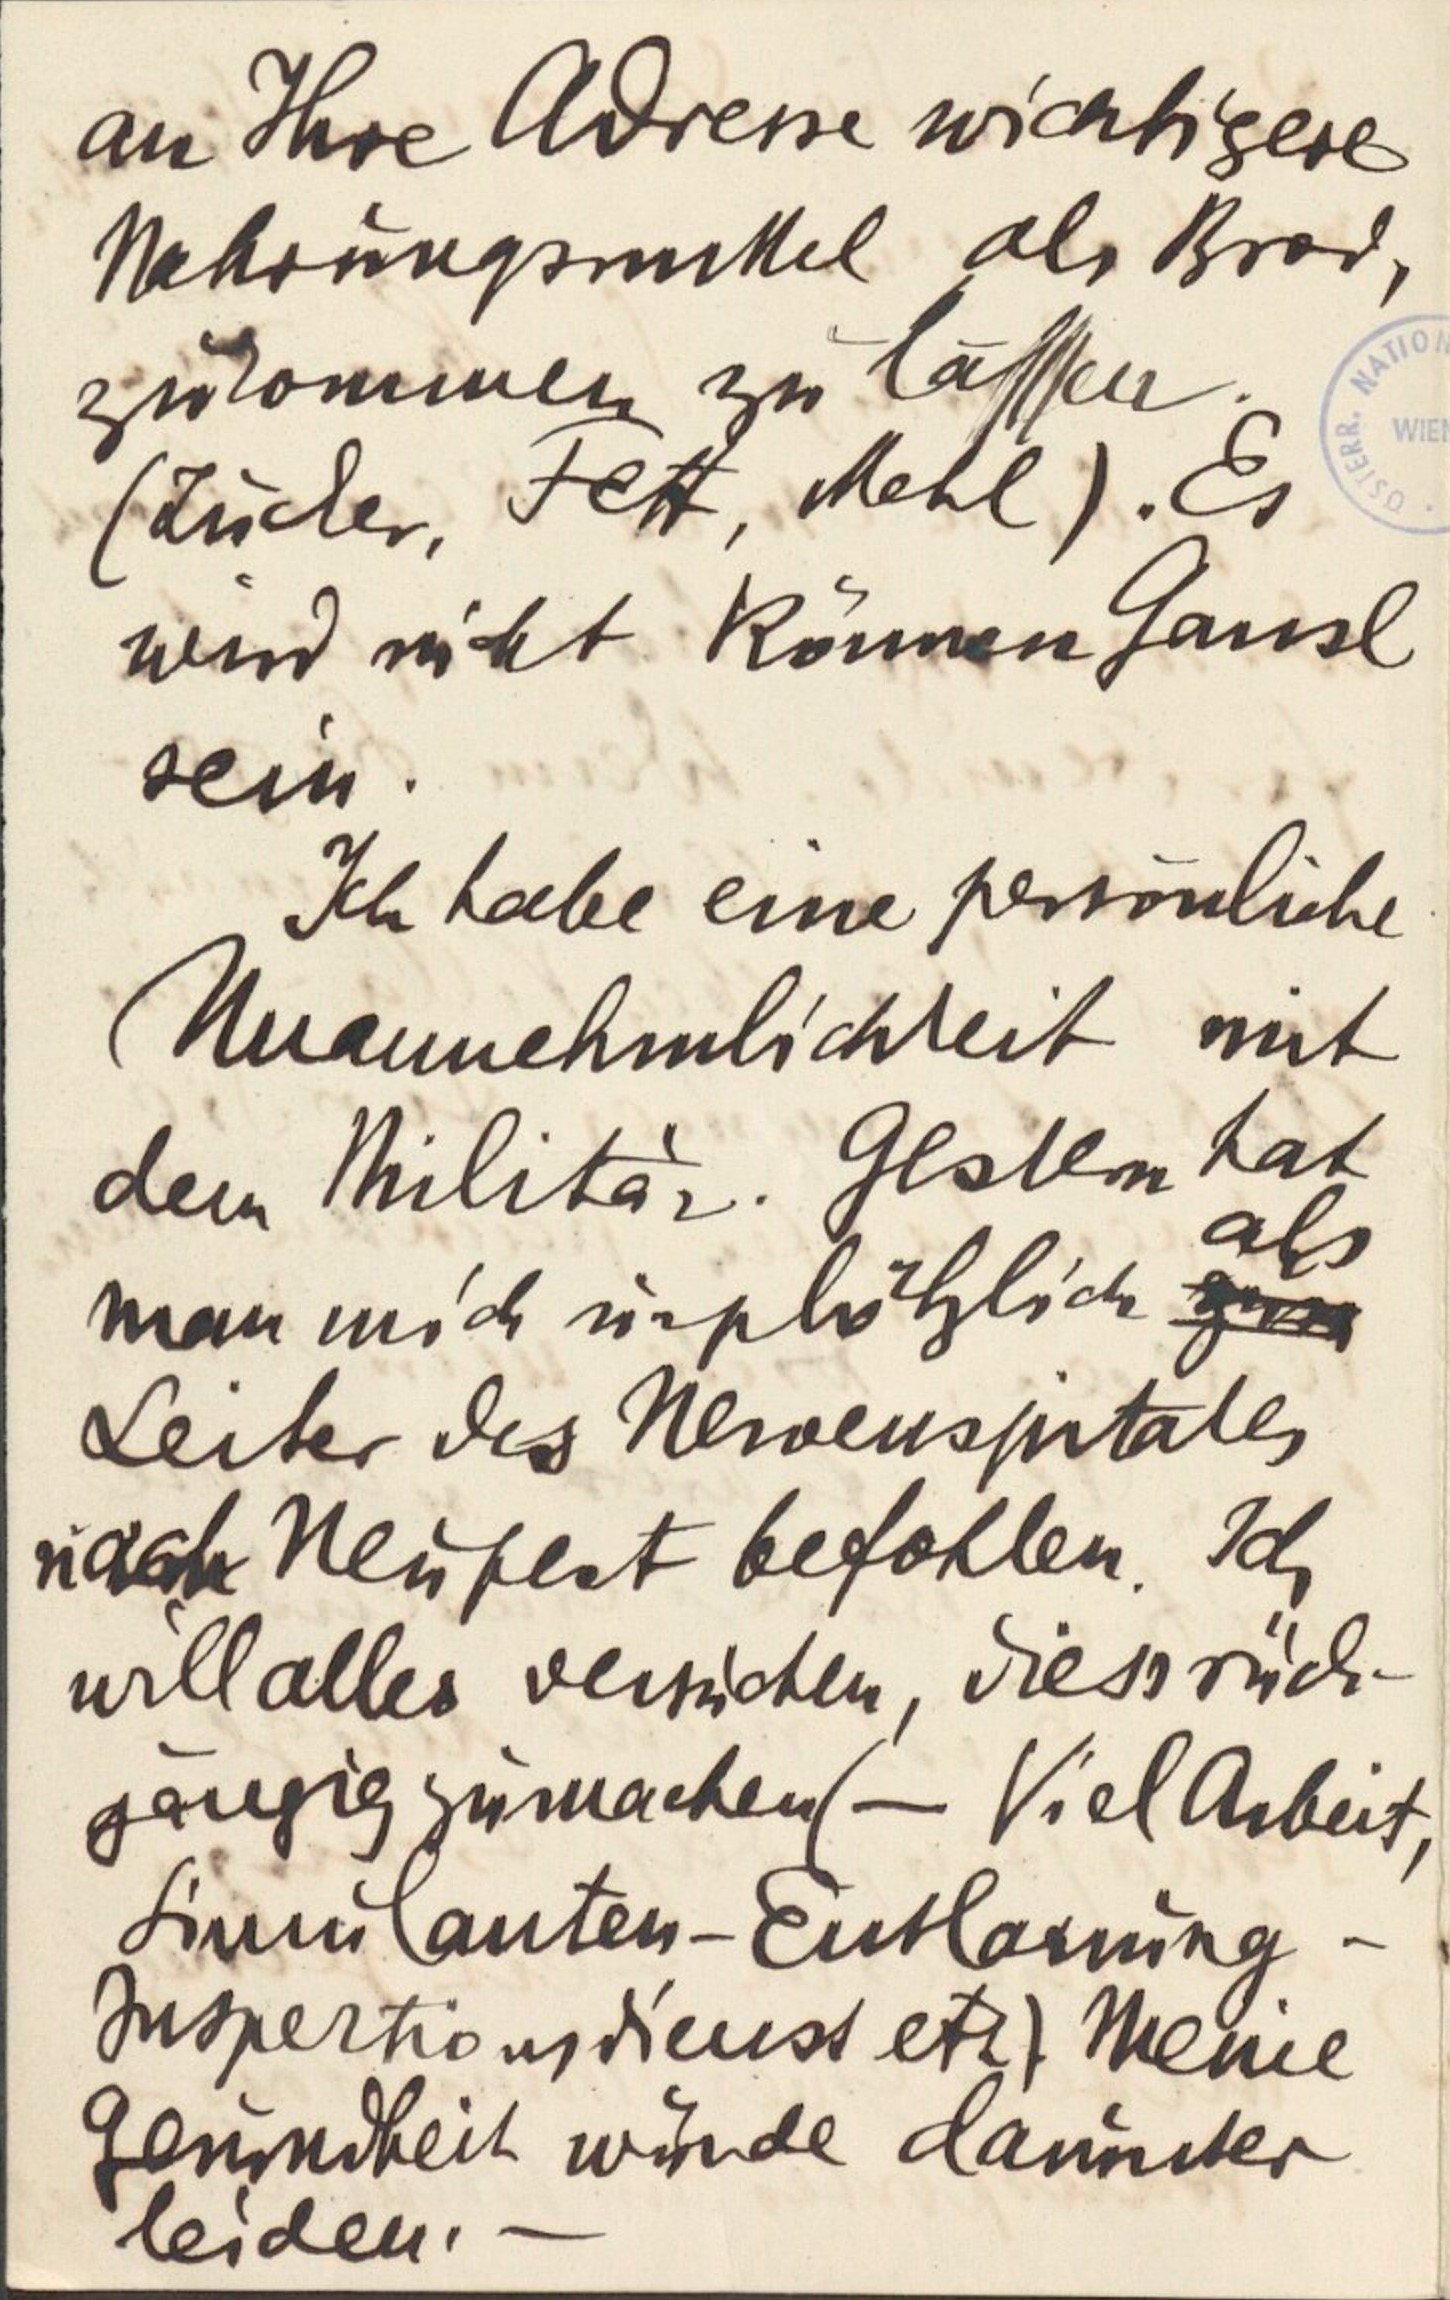 an Ihre Adresse wichtigere
Nahrungsmittel als Brod,
zukommen zu lassen.
(Zucker, Fett, Mehl). Es
wird nicht können
sein.
Ich habe eine persönliche
Unannehmlichkeit mit
dem Militär. Gestern hat
man mich urplötzlich als
Leiter des Nervenspitales
nach Neupest befohlen. Ich
will alles versuchen, diess rück-
gängig zu machen (— Viel Arbeit,
Simulanten-Entlarvung -
Inspectionsdienst etz) Meine
Gesundheit würde darunter
leiden. —
ÖSTERR. NATION
WIEN